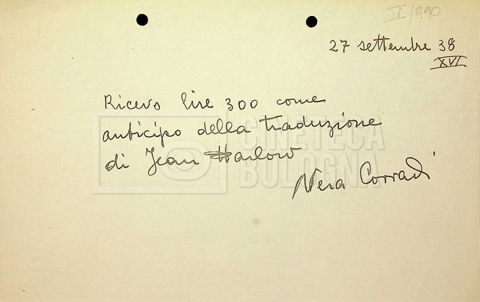 II/990
27 settembre 38
XVI
Ricevo lire 300 come
anticipo della traduzione
di Jean Harlow
Nera Corradi
CINETECA
BOLOGNA